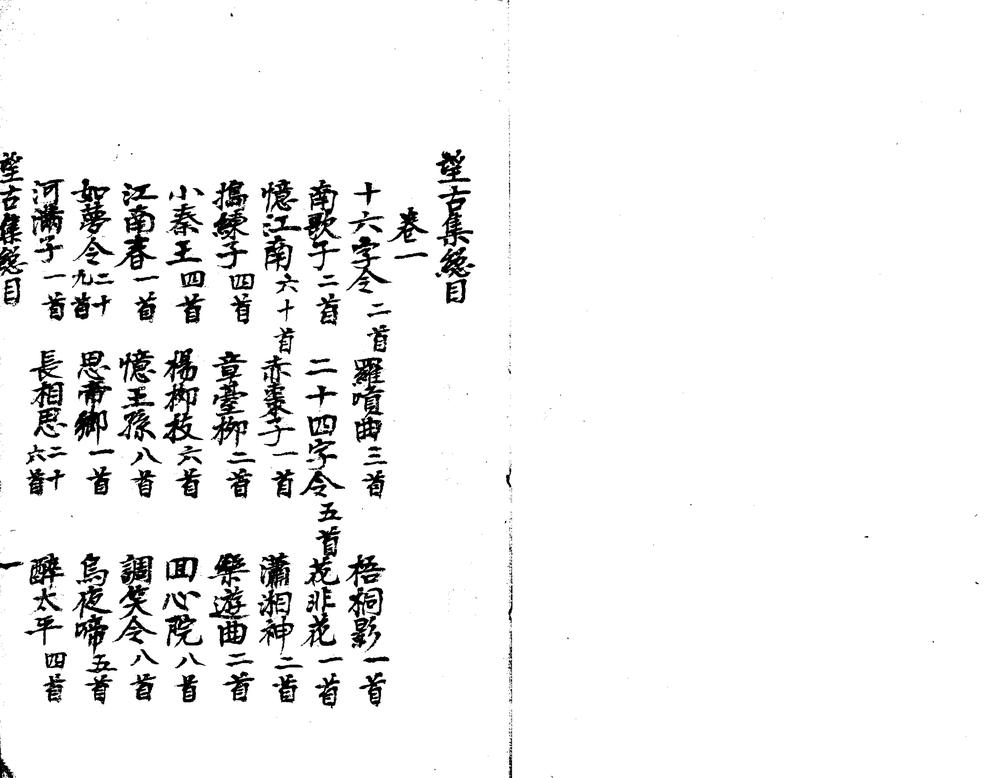 望古集總目
卷一
十六字令二首 羅嗊曲三首 梧桐影一首
南歌子二首 二十四字令五首 花非花一首
憶江南六十首 赤棗子一首 瀟湘神二首
搗練子四首 章臺柳二首 樂遊曲二首
小秦王四首 楊柳枝六首 回心院八首
江南春一首 憶王孫八首 調笑令八首
如夢令二十九首 思帝鄉一首 烏夜啼五首
河滿子一首 長相思二十六首 醉太平四首
望古集總目 一